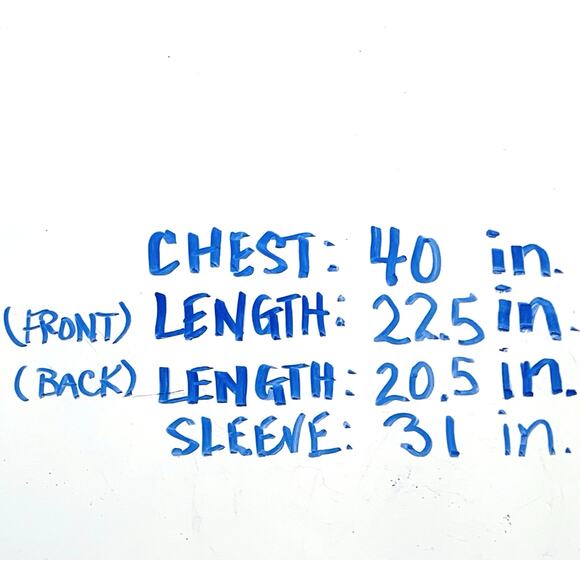 CHEST: 40 in.
(FRONT) LENGTH: 22.5 in.
(BACK) LENGTH: 20.5 in.
SLEEVE: 31 in.